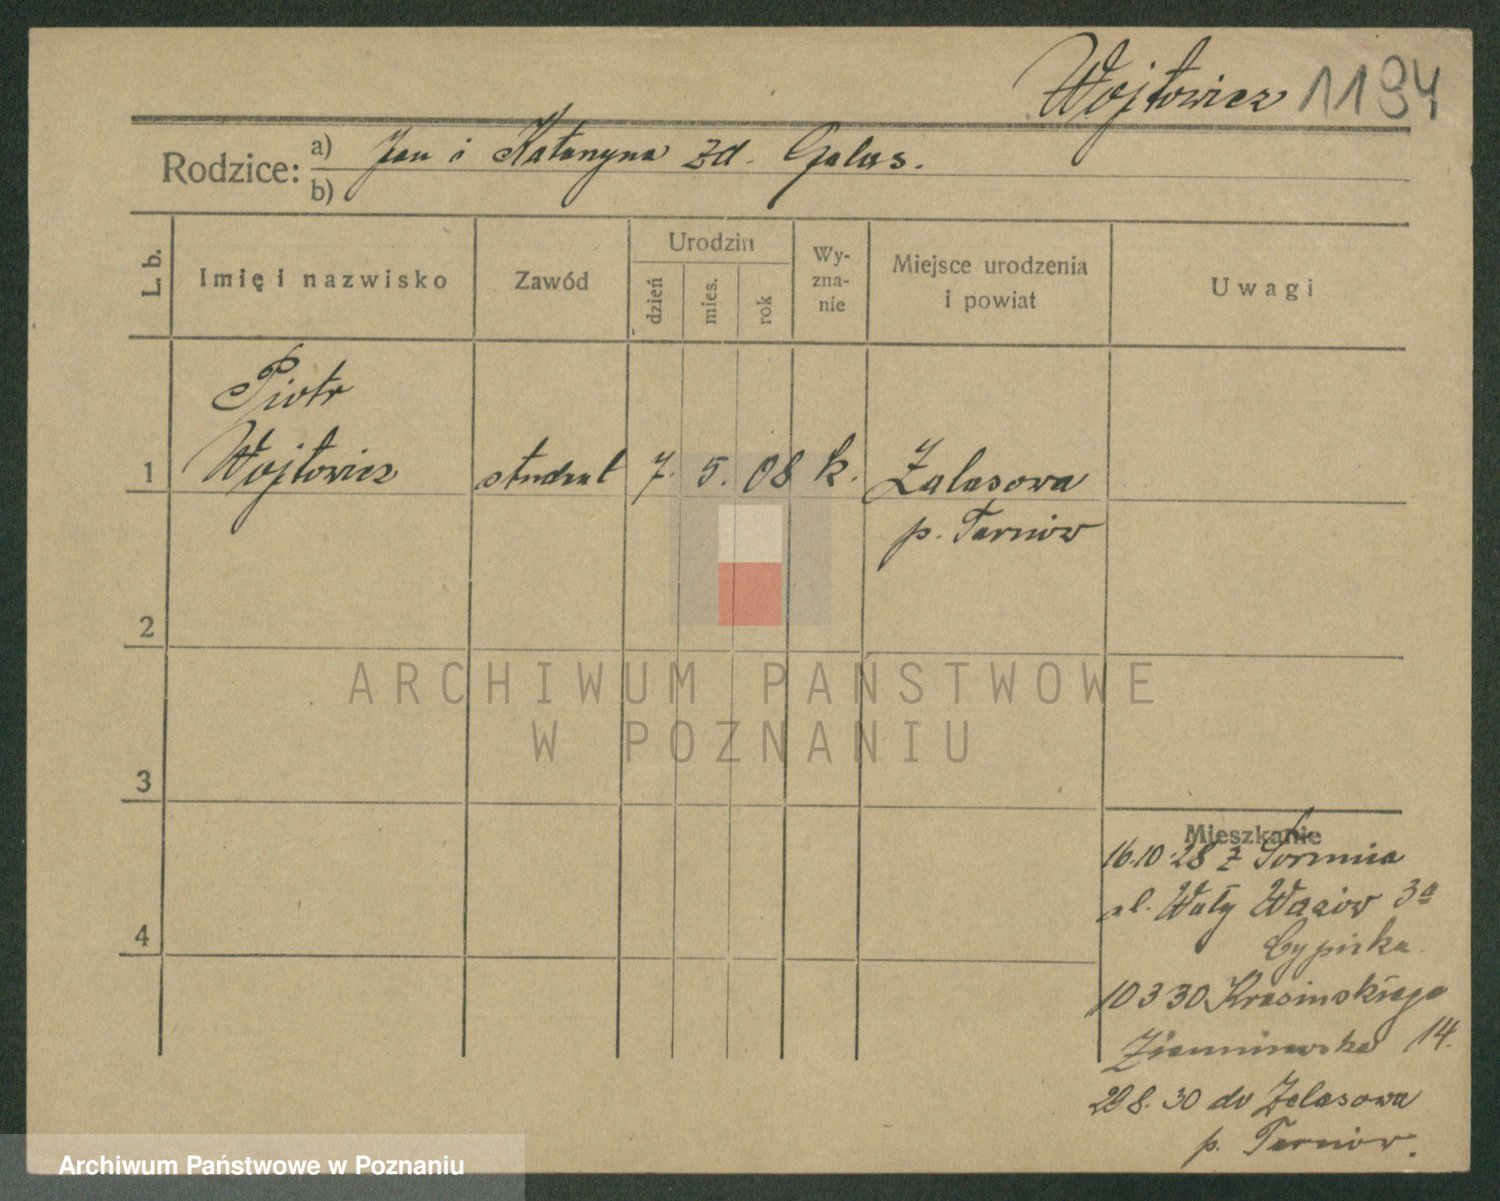 Wojtowicz 1194
Rodzice: a) Jan i Katarzyna zd. Galas.
b)
L. b.
Imię i nazwisko
Zawód
Urodzin
dzień
mies.
rok
Wy-
zna-
nie
Miejsce urodzenia
i powiat
Uwagi
Piotr
1 Wojtowicz student 7. 5. 08 k. Zalasowa
p. Tarnów
2
ARCHIWUM PAŃSTWOWE
W POZNANIU
3
Mieszkanie
16.10.28 z Torunia
ul. Wały Wazów 3a
4
10 3 30 Krasińskiego
14.
29 8. 30 do Zalasowa
p. Tarnów.
Archiwum Państwowe w Poznaniu